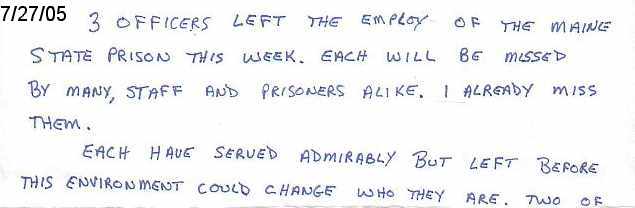 7/27/05
3 OFFICERS LEFT THE EMPLOY OF THE MAINE
STATE PRISON THIS WEEK. EACH WILL BE MISSED
BY MANY, STAFF AND PRISONERS ALIKE. I ALREADY MISS
THEM.
EACH HAVE SERVED ADMIRABLY BUT LEFT BEFORE
THIS ENVIRONMENT COULD CHANGE WHO THEY ARE. TWO OF